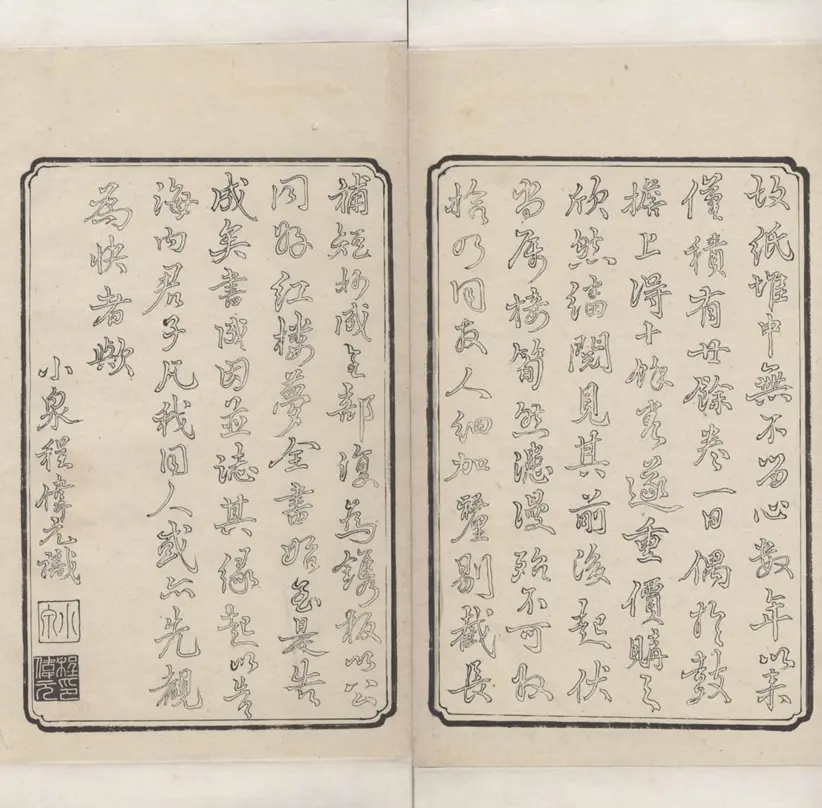 故紙堆中無不留心數年以來
僅積有廿餘卷一日偶於鼓
擔上得十餘卷遂重價購之
欣然繙閱見其前後起伏
尚屬接筍然漶漫殆不可收
拾乃同友人細加釐剔截長
補短抄成全部復為鐫板以公
同好紅樓夢全書始至是告
成矣書成因並誌其緣起以告
海內君子凡我同人或亦先覩
為快者歟
小泉程偉元識
小泉
程偉元印